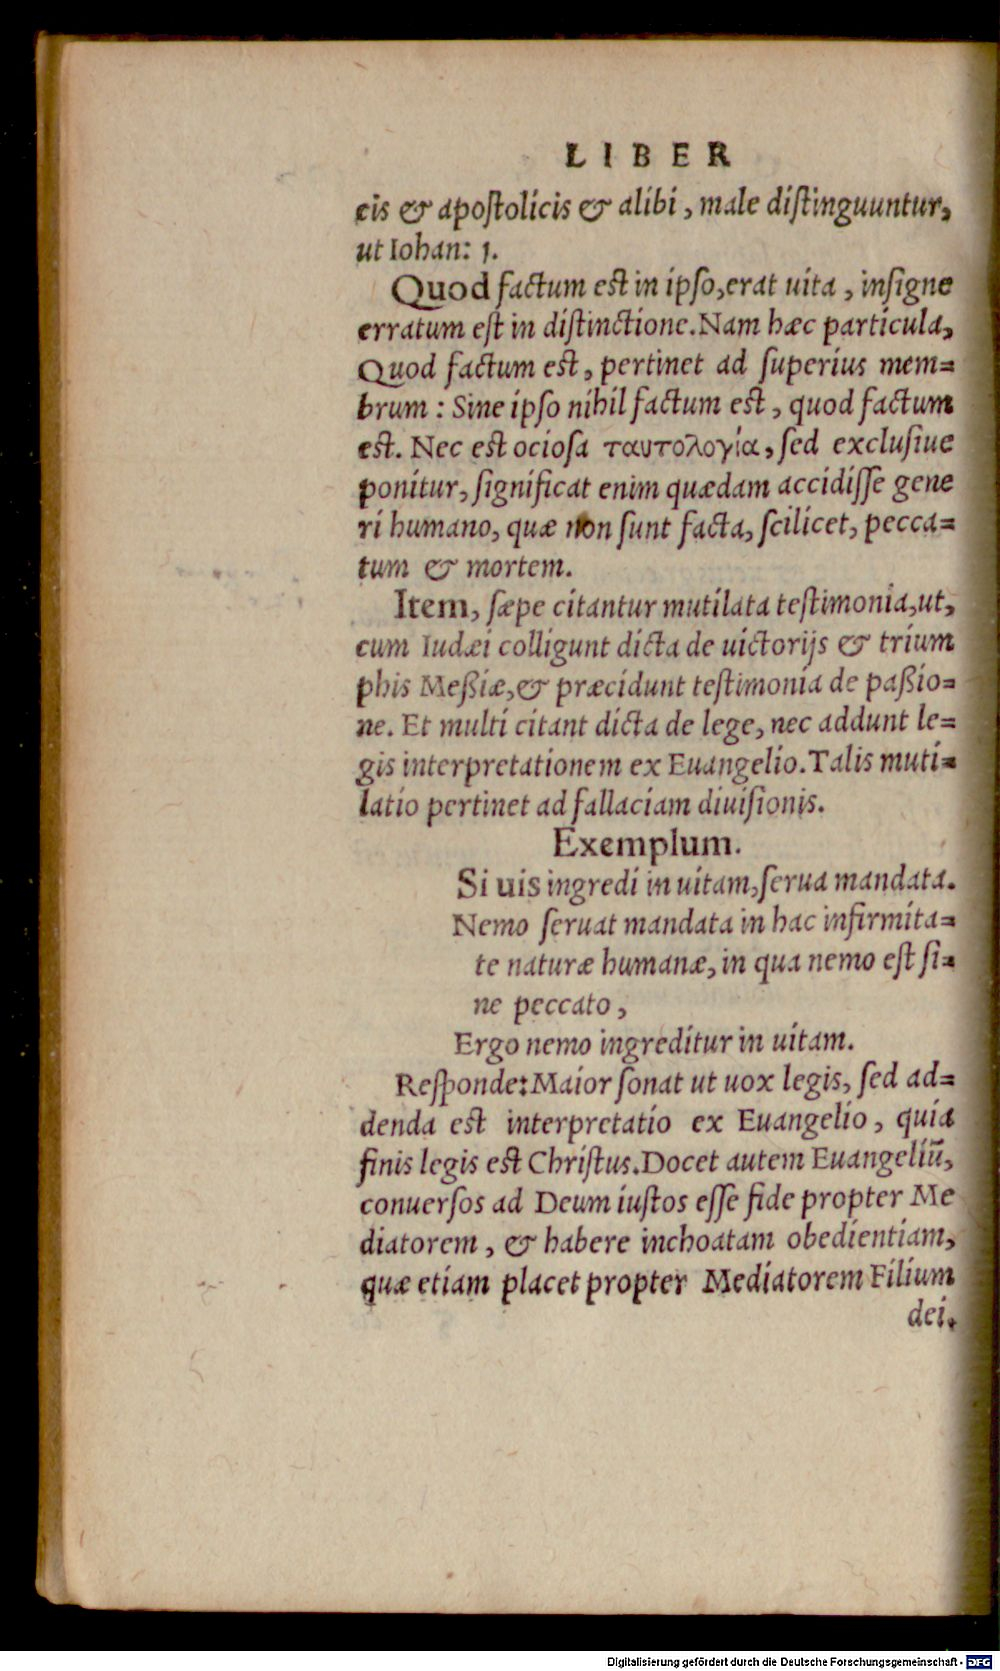 LIBER
cis & apostolicis & alibi, male distinguuntur,
ut Iohan: 1.
Quod factum est in ipso, erat uita, insigne
erratum est in distinctione. Nam hæc particula,
Quod factum est, pertinet ad superius mem=
brum: Sine ipso nihil factum est, quod factum
est. Nec est ociosa ταυτολογία, sed exclusiue
ponitur, significat enim quædam accidisse gene
ri humano, quæ non sunt facta, scilicet, pecca=
tum & mortem.
Item, sæpe citantur mutilata testimonia, ut,
cum Iudæi colligunt dicta de uictorijs & trium
phis Meßiæ, & præcidunt testimonia de paßio=
ne. Et multi citant dicta de lege, nec addunt le=
gis interpretationem ex Euangelio. Talis muti=
latio pertinet ad fallaciam diuisionis.
Exemplum.
Si uis ingredi in uitam, serua mandata.
Nemo seruat mandata in hac infirmita=
te naturæ humanæ, in qua nemo est si=
ne peccato,
Ergo nemo ingreditur in uitam.
Responde: Maior sonat ut uox legis, sed ad=
denda est interpretatio ex Euangelio, quia
finis legis est Christus. Docet autem Euangeliũ,
conuersos ad Deum iustos esse fide propter Me
diatorem, & habere inchoatam obedientiam,
quæ etiam placet propter Mediatorem Filium
dei.
Digitalisierung gefördert durch die Deutsche Forschungsgemeinschaft - DFG